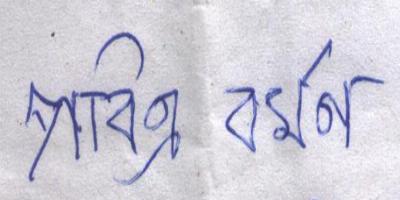 পবিত্র বর্মণ